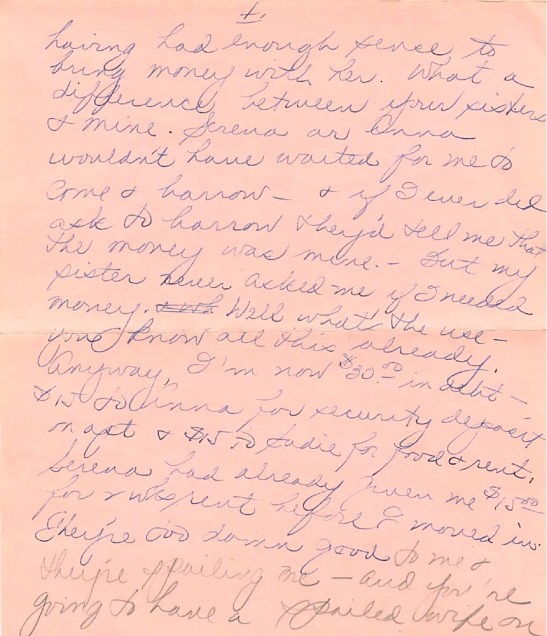 4.
having had enough sense to
bring money with her. What a
difference between your sisters
& mine. Serena or Anna
wouldn't have waited for me to
come & borrow - & if I ever did
ask to borrow they'd tell me that
the money was mine. - But my
sister never asked me if I needed
money. Well what's the use -
you know all this already.
Anyway, I'm now $30.00 in debt -
$15 to Anna for security deposit
on apt & $15 to Sadie for food & rent.
Serena had already given me $15.00
for rent before I moved in.
They're too damn good to me &
they're spoiling me - and you're
going to have a spoiled wife on